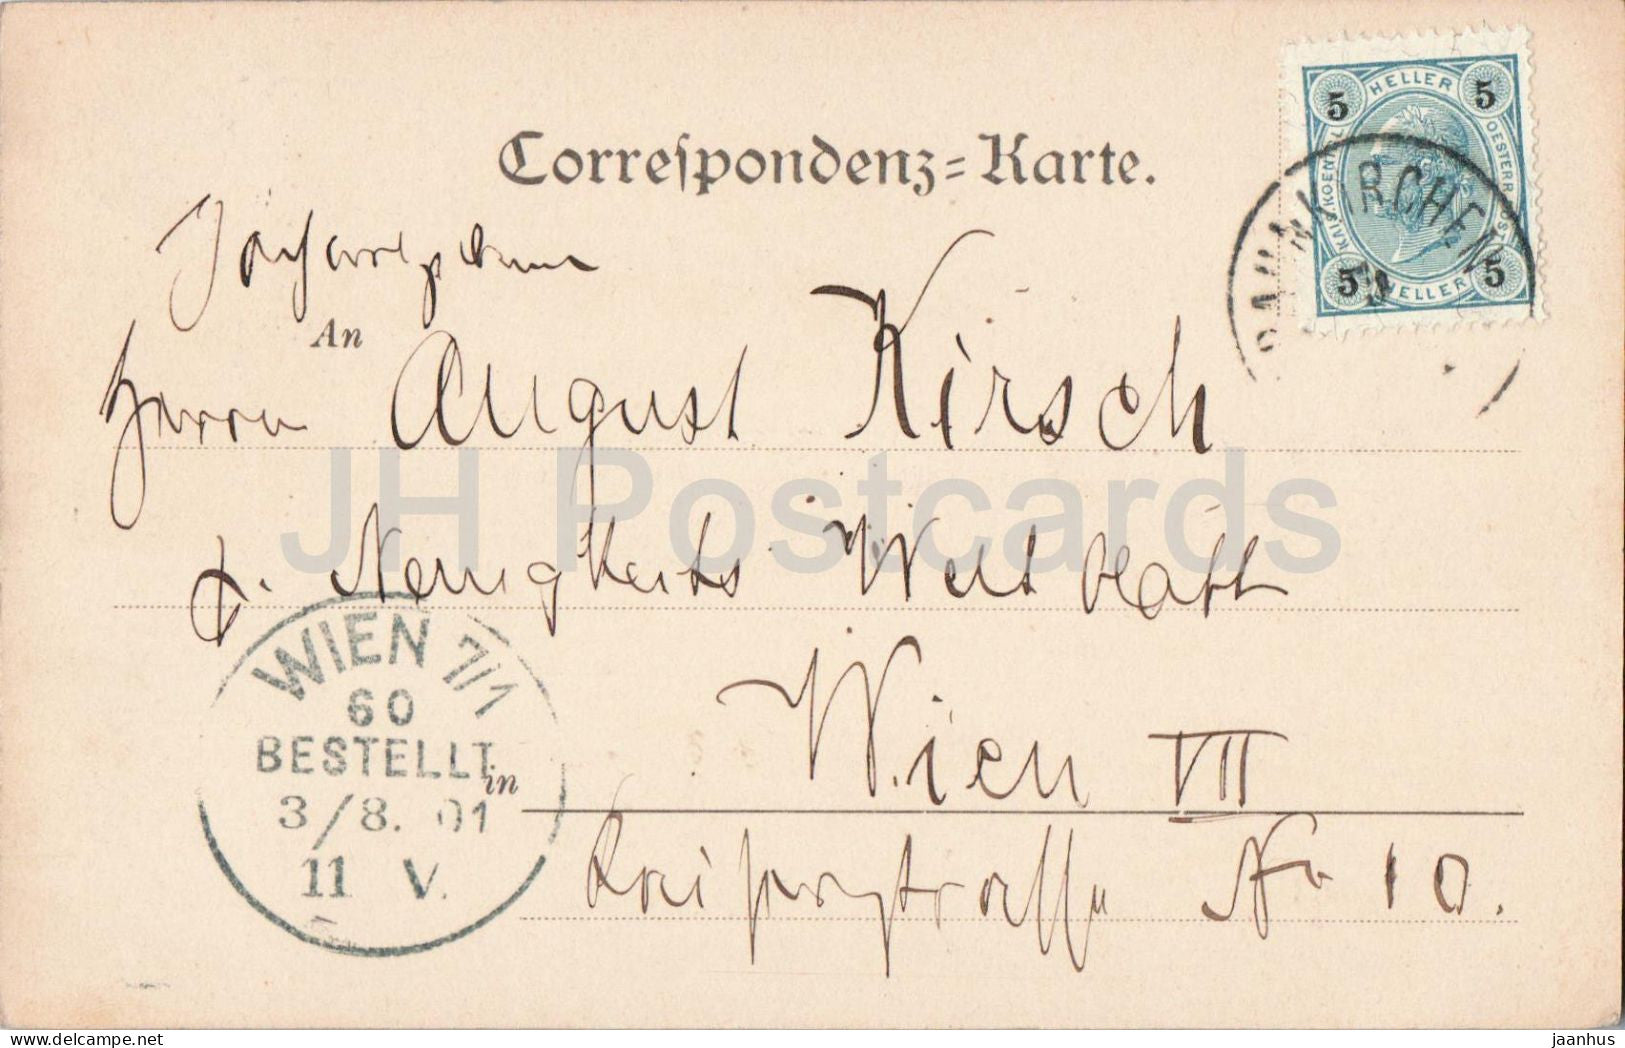 Correſpondenz=Karte.
HELLER
5 5
KAIS. KOENIGL. OESTERR. POST
5 5
HELLER
BAUNKIRCHEN
An
Herrn August Kirsch
Neuigkeits Welt Blatt
JH Postcards
WIEN 7/1
60
BESTELLT
3/8. 01
11 V.
in
Wien VII
Kaiserstrasse No 10.
www.delcampe.net
jaanhus